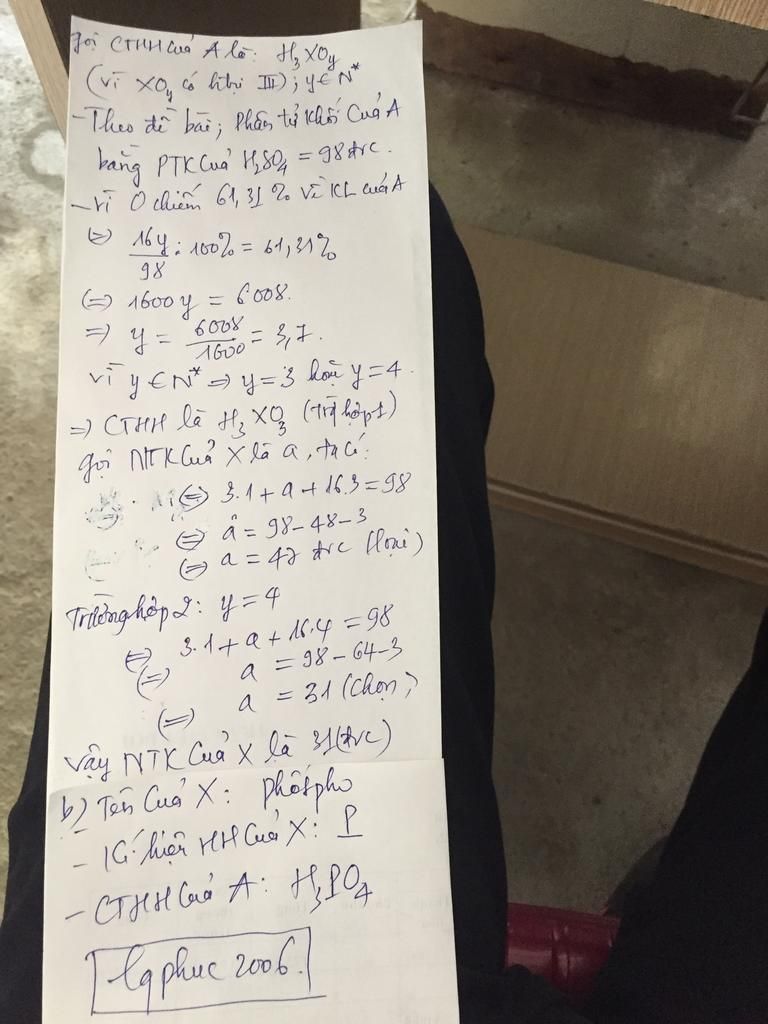 gọi CTHH của A là: H₃XOy
(vì XOy có htrị III); y∈N*
- Theo đề bài; phân tử khối của A
bằng PTK của H₂SO₄ = 98 đvc.
- Vì O chiếm 61,31% về KL của A
(=) 16y/98 . 100% = 61,31%
(=) 1600y = 6008.
=> y = 6008/1600 = 3,7.
Vì y∈N* => y=3 hoặc y=4.
=> CTHH là H₃XO₃ (Trg hợp 1)
gọi NTK của X là a, ta có:
(=) 3.1+a+16.3=98
(=) a = 98-48-3
(=) a = 47 đvc (loại)
Trường hợp 2: y=4
(=) 3.1+a+16.4=98
(=) a = 98-64-3
(=) a = 31 (chọn)
Vậy NTK của X là 31 (đvc)
b) Tên của X: phốtpho
- Kí hiệu HH của X: P
- CTHH của A: H₃PO₄
lqphuc 2006.